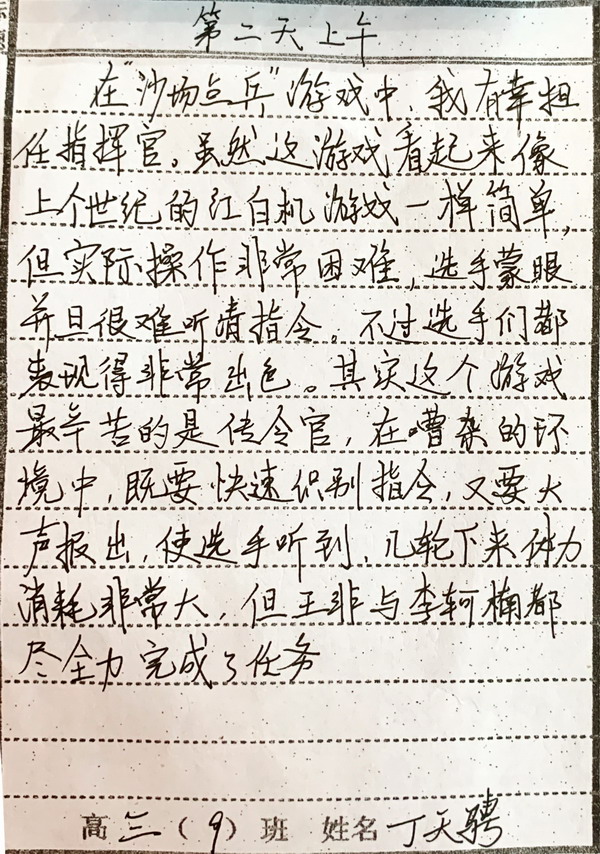 第二天上午
在"沙场点兵"游戏中,我有幸担
任指挥官。虽然这游戏看起来像
上个世纪的红白机游戏一样简单,
但实际操作非常困难,选手蒙眼
并且很难听清指令。不过选手们都
表现得非常出色。其实这个游戏
最辛苦的是传令官,在嘈杂的环
境中,既要快速识别指令,又要大
声报出,使选手听到,几轮下来体力
消耗非常大,但王非与李轲楠都
尽全力完成了任务
高三(9)班 姓名丁天骋